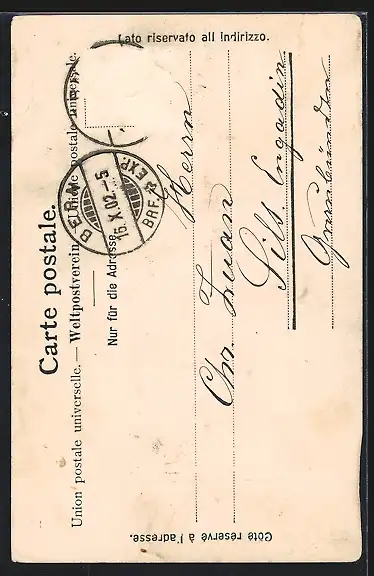 Carte postale.
Union postale universelle. — Weltpostverein. — Unione postale universale.
Nur für die Adresse.
Lato riservato all indirizzo.
Côté réservé à l'adresse.
BERN
16.X.02.-5
BRF. EXP.
Herrn
Chr. Zuan
Sils Engadin
Graubünden